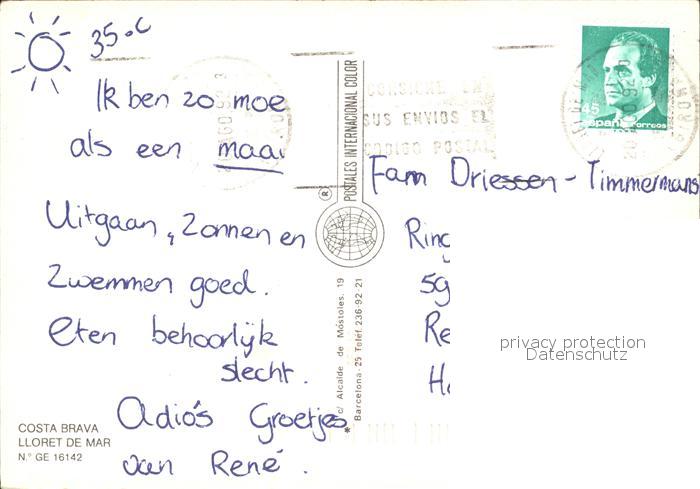 35°C
Ik ben zo moe
als een maai
Uitgaan, zonnen en
zwemmen goed.
Eten behoorlijk
slecht.
Adiós Groetjes
van René.
COSTA BRAVA
LLORET DE MAR
N.° GE 16142
POSTALES INTERNACIONAL COLOR
®
c/ Alcalde de Móstoles, 19
Barcelona-25 Teléf. 236-92-21
CONSIGNE EN
SUS ENVIOS EL
CODIGO POSTAL
45
España correos
Fam Driessen - Timmermans
Ring
59
Re
H
privacy protection
Datenschutz